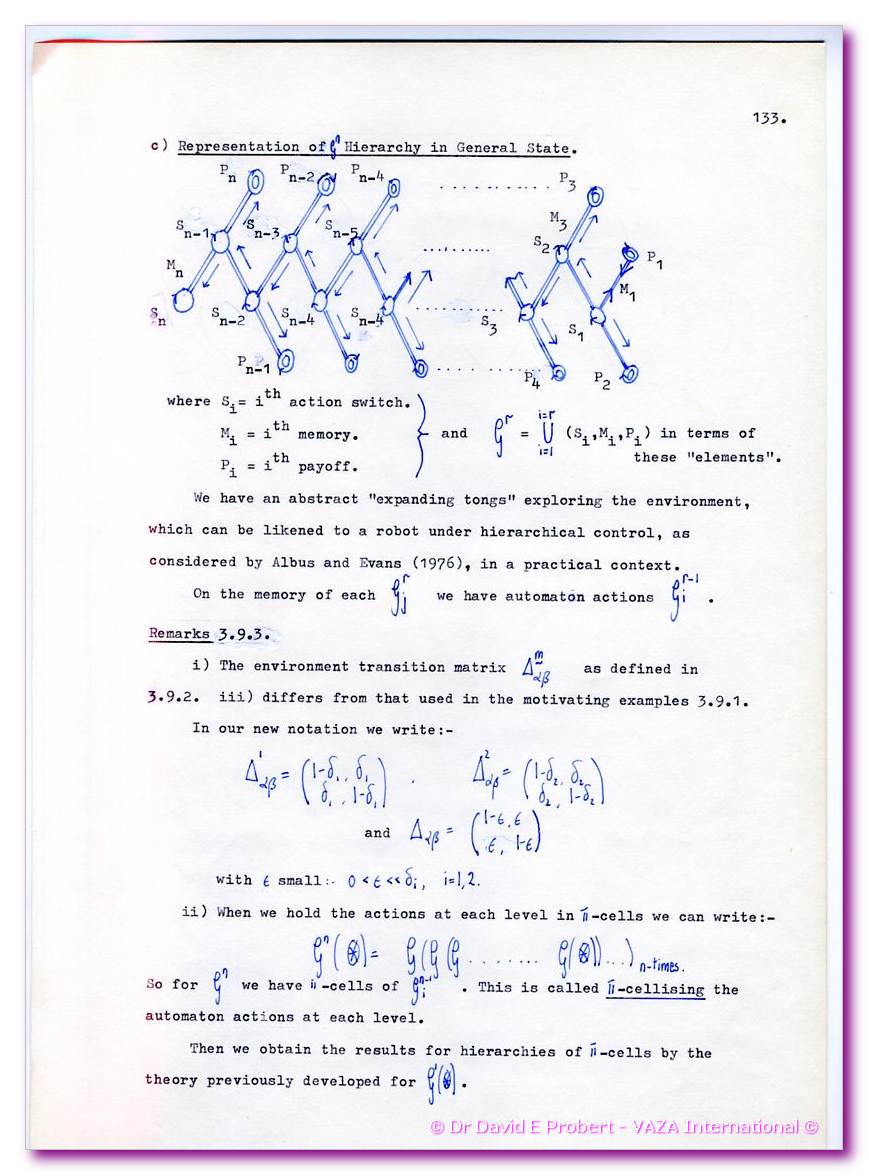 133.
c) Representation of 𝒢ⁿ Hierarchy in General State.
Pn Pn-2 Pn-4 ........... P3
Sn-1 Sn-3 Sn-5 ......... M3
S2 P1
Mn M1
Sn Sn-2 Sn-4 Sn-4 ........... S3 S1
Pn-1 ........... P4 P2
where Si = ith action switch.
Mi = ith memory. } and 𝒢ʳ = ⋃ i=1 i=r (Si,Mi,Pi) in terms of
Pi = ith payoff. these "elements".
We have an abstract "expanding tongs" exploring the environment,
which can be likened to a robot under hierarchical control, as
considered by Albus and Evans (1976), in a practical context.
On the memory of each 𝒢jʳ we have automaton actions 𝒢iʳ⁻¹ .
Remarks 3.9.3.
i) The environment transition matrix Δᵐαβ as defined in
3.9.2. iii) differs from that used in the motivating examples 3.9.1.
In our new notation we write:-
Δ¹αβ = (1-δ1, δ1 . Δ²αβ = (1-δ2, δ2
δ1, 1-δ1) δ2, 1-δ2)
and Δαβ = (1-ε, ε
ε, 1-ε)
with ε small:- 0 < ε << δi, i=1,2.
ii) When we hold the actions at each level in π-cells we can write:-
𝒢ⁿ(⊛) = 𝒢(𝒢(𝒢 ........ 𝒢(⊛))...) n-times.
So for 𝒢ⁿ we have π-cells of 𝒢iⁿ⁻¹ . This is called π-cellising the
automaton actions at each level.
Then we obtain the results for hierarchies of π-cells by the
theory previously developed for 𝒢¹(⊛).
© Dr David E Probert - VAZA International ©